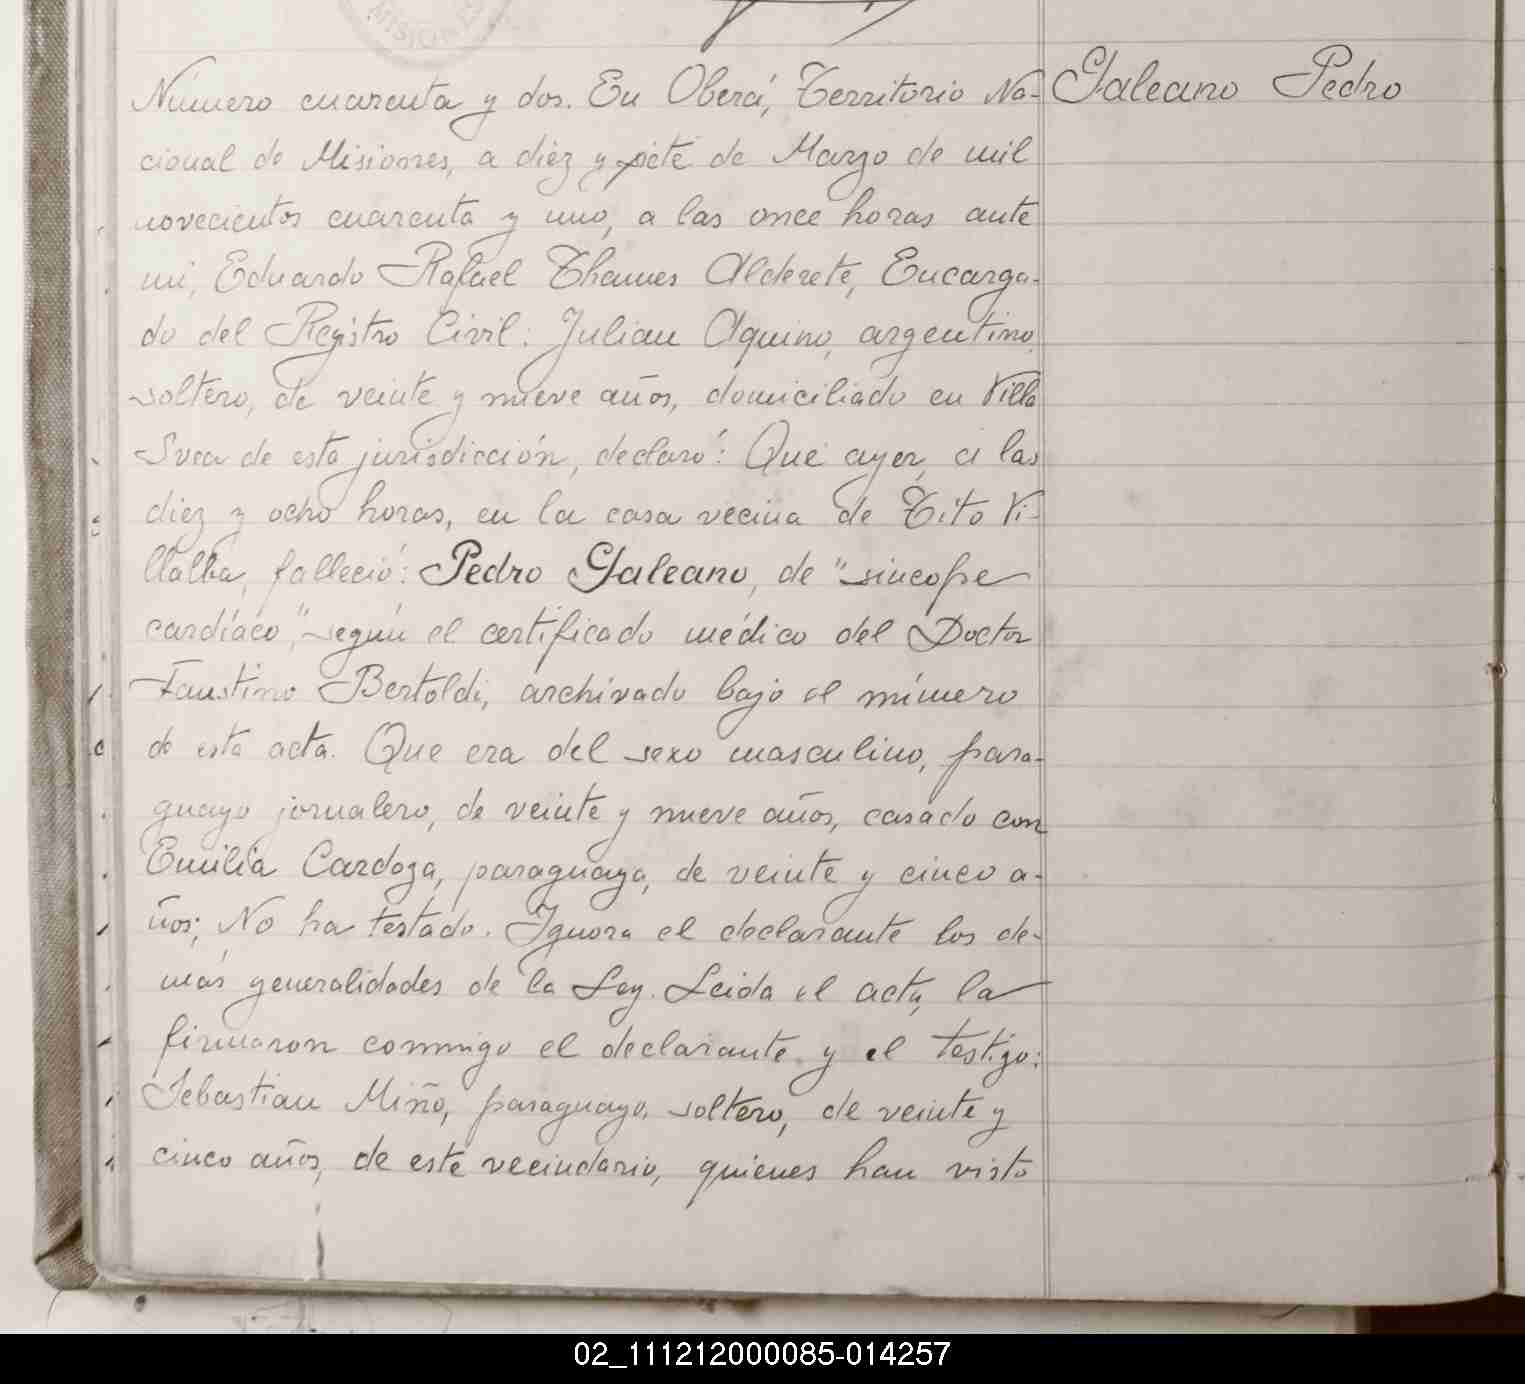 MISIONES
Número cuarenta y dos. En Oberá, Territorio Na-
Galeano Pedro
cional de Misiones, a diez y siete de Marzo de mil
novecientos cuarenta y uno, a las once horas ante
mi, Eduardo Rafael Thames Alderete, Encarga-
do del Registro Civil: Julian Aquino, argentino,
soltero, de veinte y nueve años, domiciliado en Villa
Svea de esta jurisdicción, declaró: Que ayer, a las
diez y ocho horas, en la casa vecina de Tito Vi-
llalba, falleció: Pedro Galeano, de "sincope
cardíaco", según el certificado médico del Doctor
Faustino Bertoldi, archivado bajo el número
de esta acta. Que era del sexo masculino, para-
guayo jornalero, de veinte y nueve años, casado con
Emilia Cardoza, paraguaya, de veinte y cinco a-
ños; No ha testado. Ignora el declarante los de-
más generalidades de la Ley. Leida el acta, la
firmaron conmigo el declarante y el testigo:
Sebastian Miño, paraguayo, soltero, de veinte y
cinco años, de este vecindario, quienes han visto
02_111212000085-014257